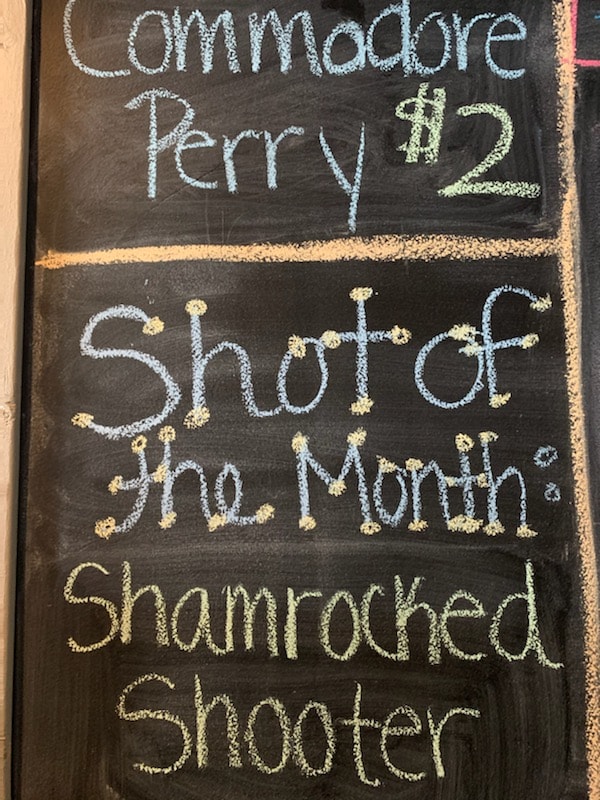 Commadore
Perry $2
Shot of
the Month:
Shamrocked
Shooter